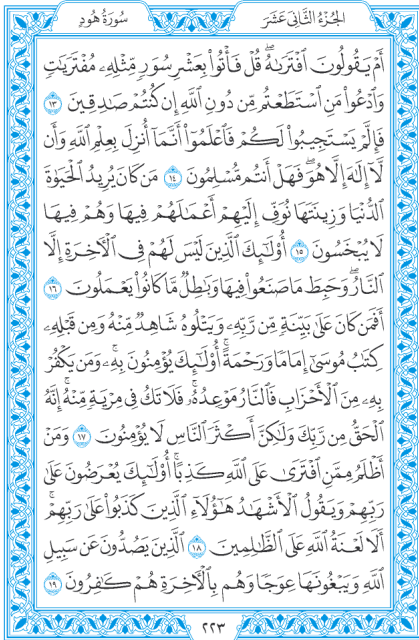 الجزء الثاني عشر
سورة هود
أَمْ يَقُولُونَ ٱفْتَرَىٰهُ ۖ قُلْ فَأْتُوا۟ بِعَشْرِ سُوَرٍ مِّثْلِهِۦ مُفْتَرَيَـٰتٍ
وَٱدْعُوا۟ مَنِ ٱسْتَطَعْتُم مِّن دُونِ ٱللَّهِ إِن كُنتُمْ صَـٰدِقِينَ ١٣
فَإِلَّمْ يَسْتَجِيبُوا۟ لَكُمْ فَٱعْلَمُوٓا۟ أَنَّمَآ أُنزِلَ بِعِلْمِ ٱللَّهِ وَأَن
لَّآ إِلَـٰهَ إِلَّا هُوَ ۖ فَهَلْ أَنتُم مُّسْلِمُونَ ١٤ مَن كَانَ يُرِيدُ ٱلْحَيَوٰةَ
ٱلدُّنْيَا وَزِينَتَهَا نُوَفِّ إِلَيْهِمْ أَعْمَـٰلَهُمْ فِيهَا وَهُمْ فِيهَا
لَا يُبْخَسُونَ ١٥ أُو۟لَـٰٓئِكَ ٱلَّذِينَ لَيْسَ لَهُمْ فِى ٱلْـَٔاخِرَةِ إِلَّا
ٱلنَّارُ ۖ وَحَبِطَ مَا صَنَعُوا۟ فِيهَا وَبَـٰطِلٌ مَّا كَانُوا۟ يَعْمَلُونَ ١٦
أَفَمَن كَانَ عَلَىٰ بَيِّنَةٍ مِّن رَّبِّهِۦ وَيَتْلُوهُ شَاهِدٌ مِّنْهُ وَمِن قَبْلِهِۦ
كِتَـٰبُ مُوسَىٰٓ إِمَامًا وَرَحْمَةً ۚ أُو۟لَـٰٓئِكَ يُؤْمِنُونَ بِهِۦ ۚ وَمَن يَكْفُرْ
بِهِۦ مِنَ ٱلْأَحْزَابِ فَٱلنَّارُ مَوْعِدُهُۥ ۚ فَلَا تَكُ فِى مِرْيَةٍ مِّنْهُ ۚ إِنَّهُ
ٱلْحَقُّ مِن رَّبِّكَ وَلَـٰكِنَّ أَكْثَرَ ٱلنَّاسِ لَا يُؤْمِنُونَ ١٧ وَمَنْ
أَظْلَمُ مِمَّنِ ٱفْتَرَىٰ عَلَى ٱللَّهِ كَذِبًا ۚ أُو۟لَـٰٓئِكَ يُعْرَضُونَ عَلَىٰ
رَبِّهِمْ وَيَقُولُ ٱلْأَشْهَـٰدُ هَـٰٓؤُلَآءِ ٱلَّذِينَ كَذَبُوا۟ عَلَىٰ رَبِّهِمْ ۚ
أَلَا لَعْنَةُ ٱللَّهِ عَلَى ٱلظَّـٰلِمِينَ ١٨ ٱلَّذِينَ يَصُدُّونَ عَن سَبِيلِ
ٱللَّهِ وَيَبْغُونَهَا عِوَجًا وَهُم بِٱلْـَٔاخِرَةِ هُمْ كَـٰفِرُونَ ١٩
٢٢٣